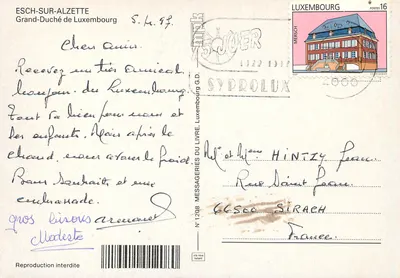 ESCH-SUR-ALZETTE
Grand-Duché de Luxembourg
5.4.97.
Chers amis.
Recevez un très amical
bonjour du Luxembourg.
Tout va bien pour nous et
les enfants. Mais après le
chaud, nous avons le froid.
Bonne santé et une
embrassade.
gros bisous
Modesto
Reproduction interdite
N° 1208 MESSAGERIES DU LIVRE, Luxembourg G.D.
SYDROLUX
LUXEMBOURG 16
Mr et Mme HINTZY Jean
Rue Saint Jean
66500 SIRACH
France